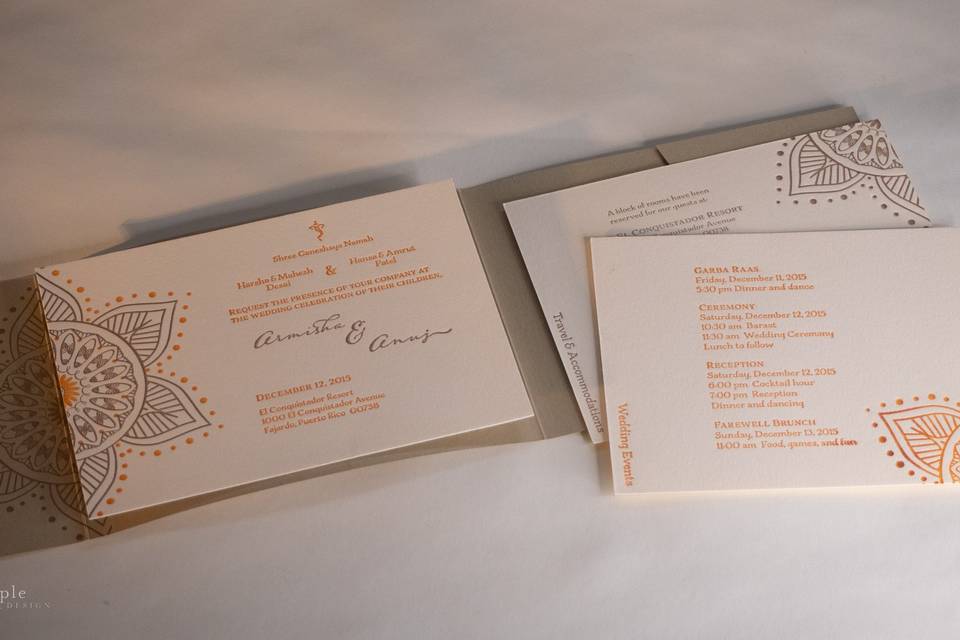 Shree Ganeshaya Namah
Harsha & Mahesh
Desai
&
Hansa & Amrut
Patel
Request the presence of your company at
the wedding celebration of their children,
Armisha & Anuj
December 12, 2015
El Conquistador Resort
1000 El Conquistador Avenue
Fajardo, Puerto Rico 00738
A block of rooms have been
reserved for our guests at:
El Conquistador Resort
Conquistador Avenue
00738
Travel & Accommodations
Garba Raas
Friday, December 11, 2015
5:30 pm Dinner and dance
Ceremony
Saturday, December 12, 2015
10:30 am Baraat
11:30 am Wedding Ceremony
Lunch to follow
Reception
Saturday, December 12, 2015
6:00 pm Cocktail hour
7:00 pm Reception
Dinner and dancing
Farewell Brunch
Sunday, December 13, 2015
11:00 am Food, games, and fun
Wedding Events
ple
DESIGN